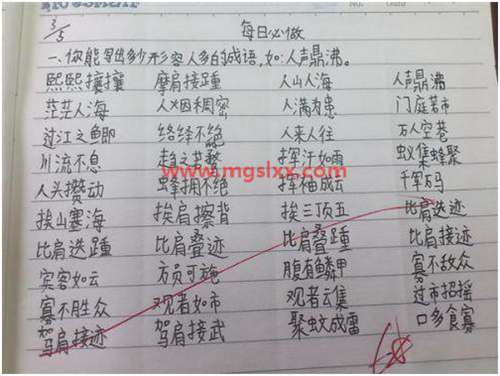 3/5
每日必做
一、你能写出多少形容人多的成语,如:人声鼎沸。
熙熙攘攘 摩肩接踵 人山人海 人声鼎沸
茫茫人海 人烟稠密 人满为患 门庭若市
过江之鲫 络绎不绝 人来人往 万人空巷
川流不息 趋之若鹜 挥汗如雨 蚁集蜂聚
www.mgslxx.com
人头攒动 蜂拥不绝 挥袖成云 千军万马
挨山塞海 挨肩擦背 挨三顶五 比肩迭迹
比肩迭踵 比肩叠迹 比肩叠踵 比肩接迹
宾客如云 方员可施 腹有鳞甲 寡不敌众
寡不胜众 观者如市 观者云集 过市招摇
驾肩接迹 驾肩接武 聚蚊成雷 口多食寡